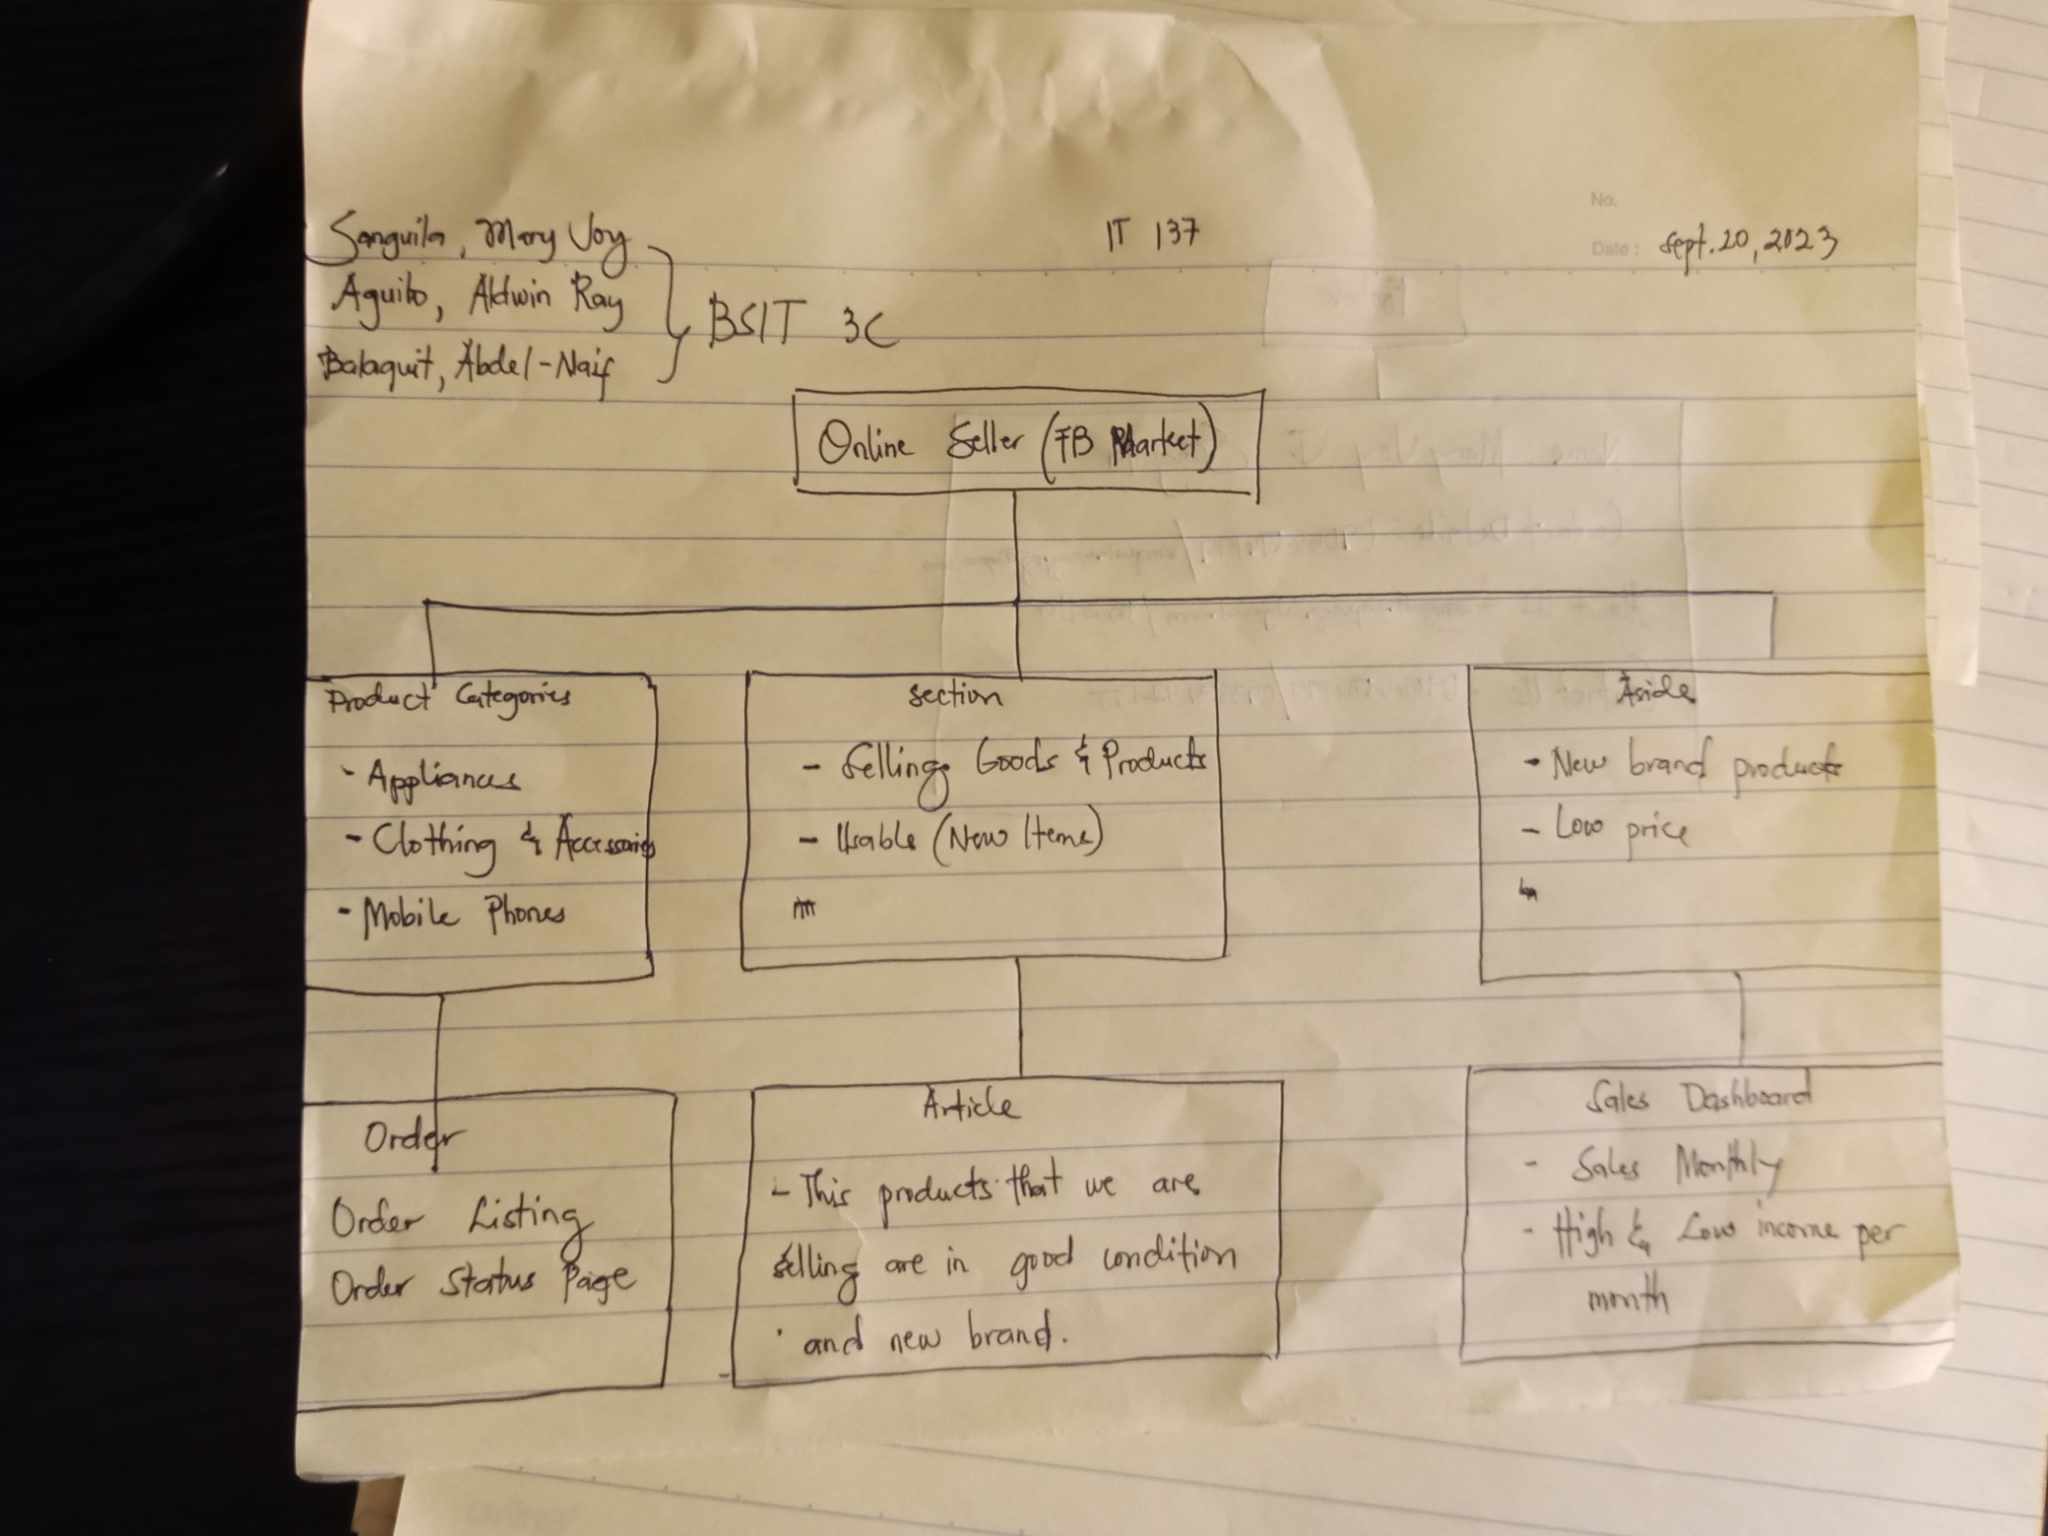 No.
Date: Sept. 20, 2023
IT 137
Sanguila, Mary Joy
Aguilo, Aldwin Ray
Balaquit, Abdel-Naif
BSIT 3C
Online Seller (FB Market)
Product Categories
- Appliances
- Clothing & Accessories
- Mobile Phones
Section
- Selling Goods & Products
- Usable (New Items)
Aside
- New brand products
- Low price
Order
Order Listing
Order Status Page
Article
- This products that we are
selling are in good condition
and new brand.
Sales Dashboard
- Sales Monthly
- High & Low income per
month